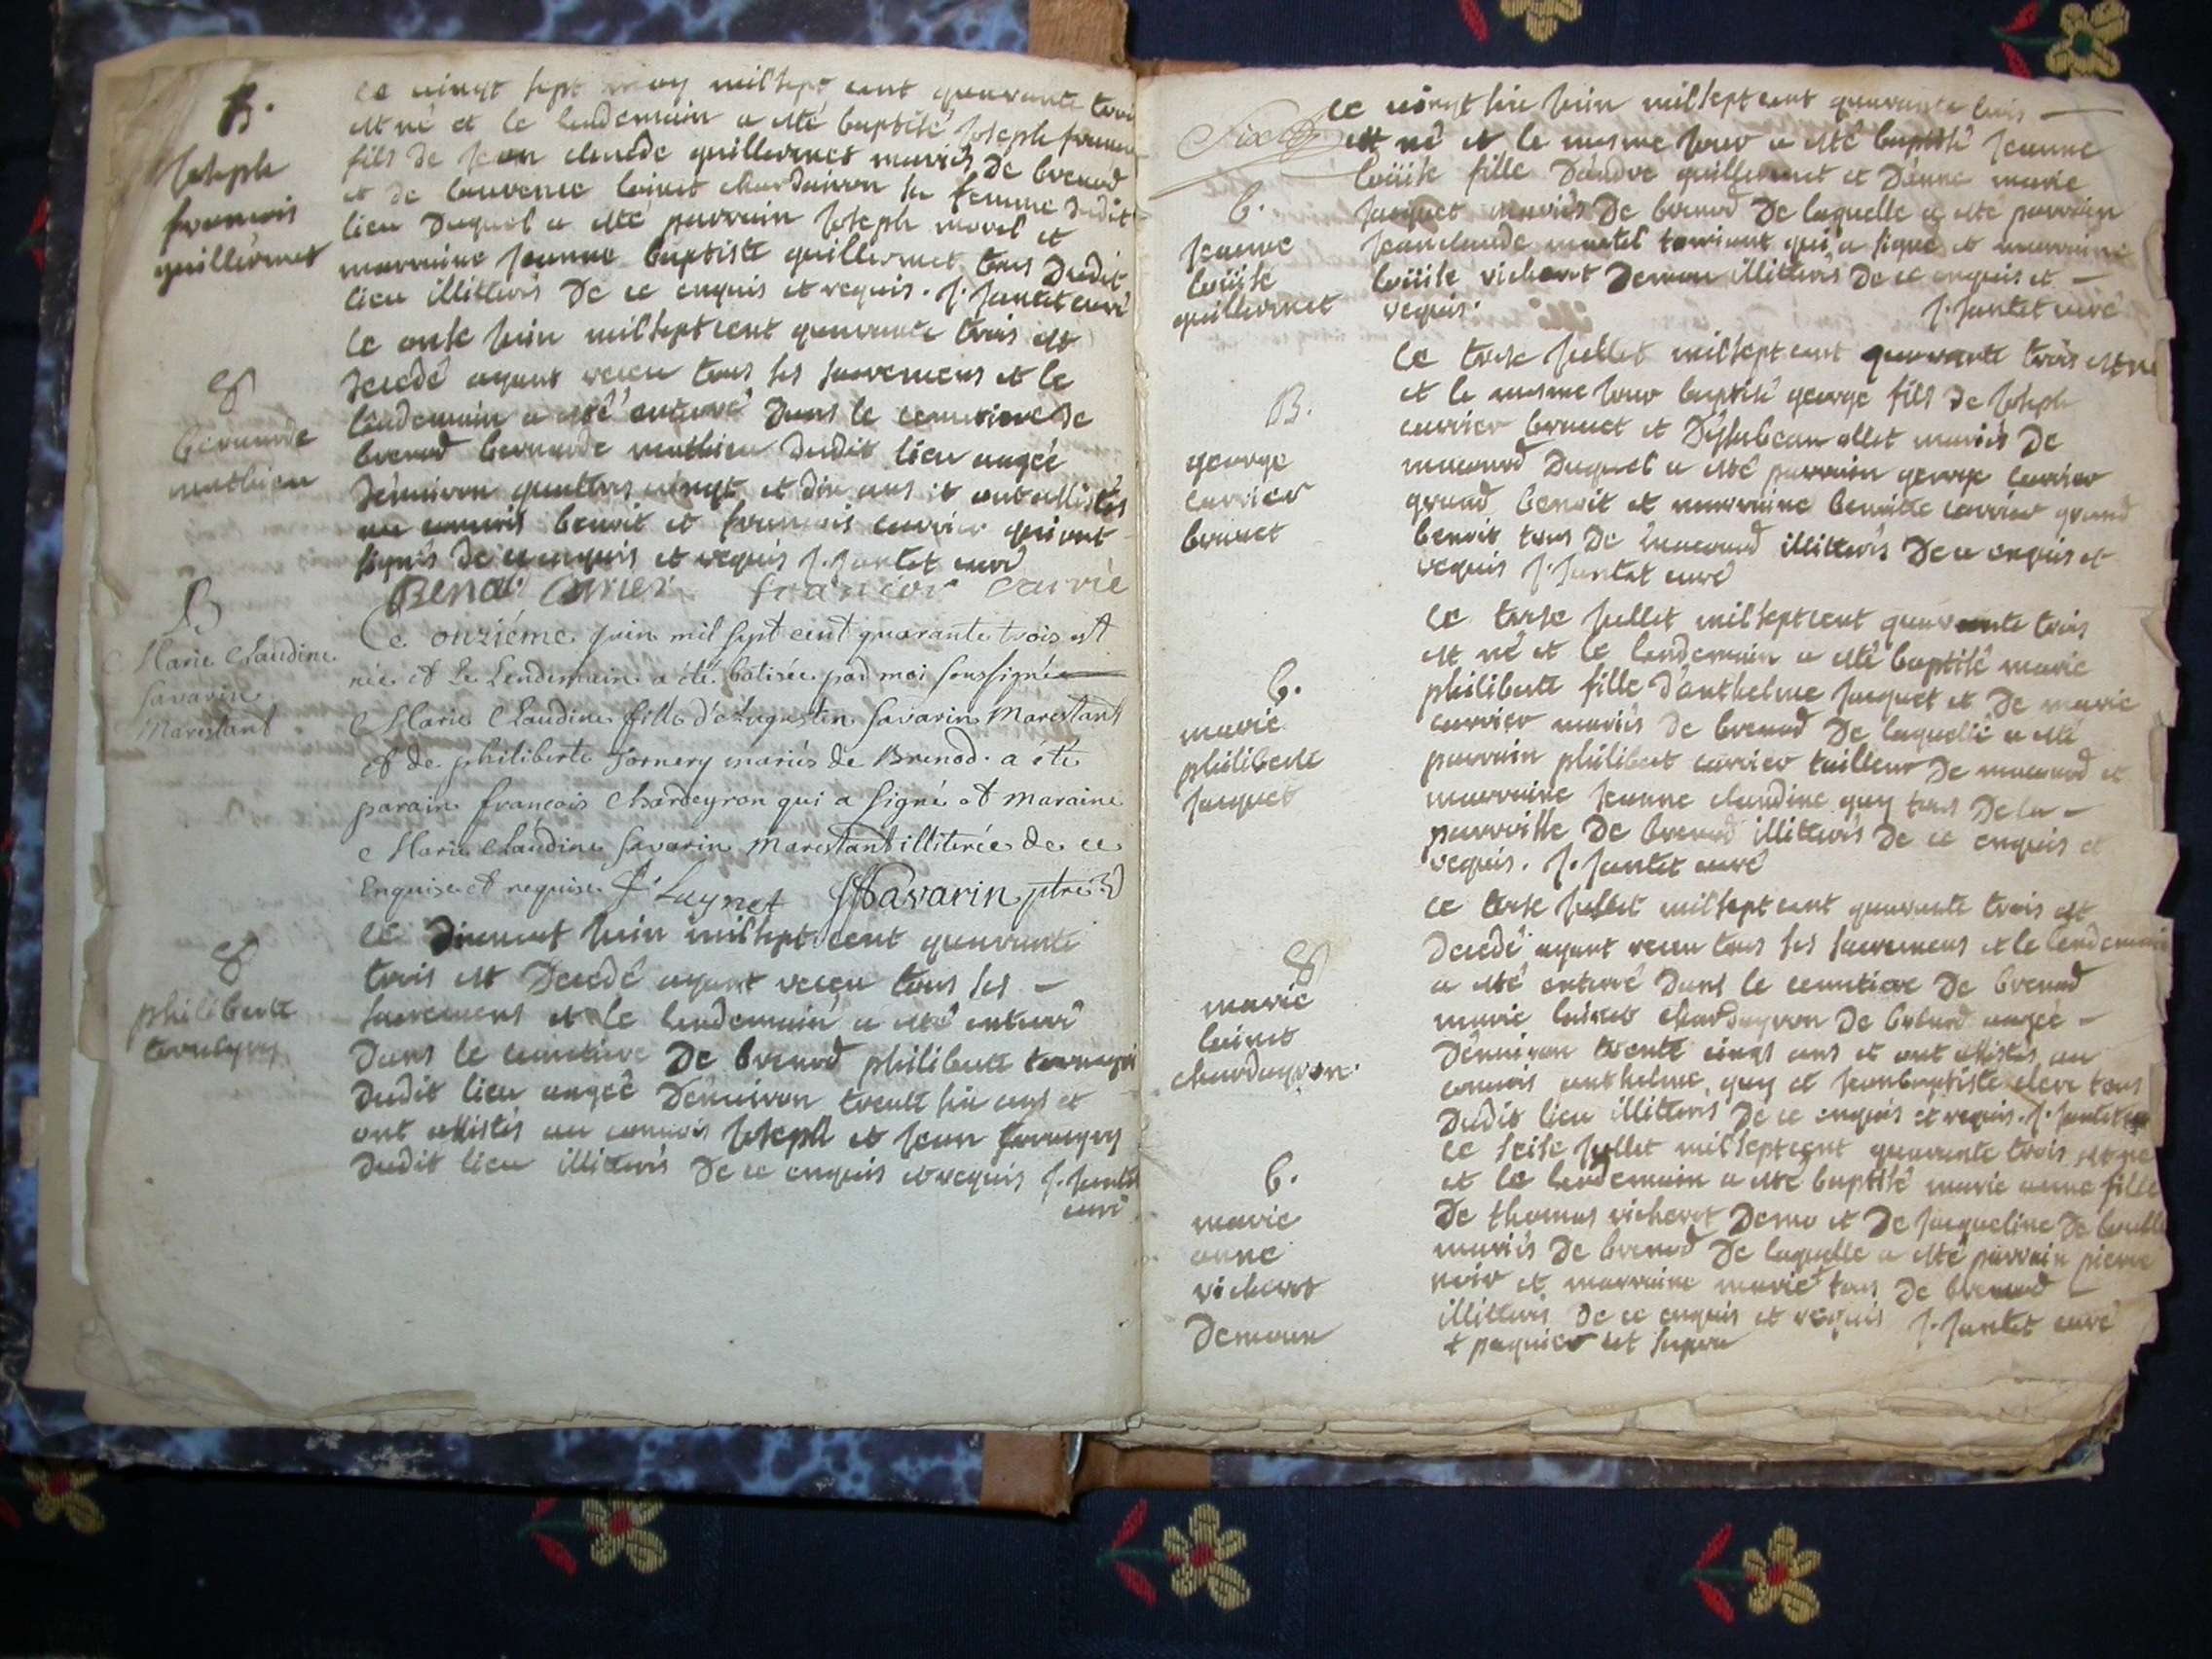 B.
Joseph
francois
guillermet
le vingt sept may mil sept cent quarante trois
est né et le lendemain a esté baptisé Joseph francois
fils de Jean claude guillermet mariés de brenod
et de laurence loinet chardeiron sa femme dudit
lieu duquel a esté parrain Joseph morel et
marraine Jeanne baptiste guillermet tous dudit
lieu illitterés de ce enquis et requis. J. Jantet curé
bernarde
mathieu
le onse Juin mil sept cent quarante trois est
decedé ayant receu tous ses sacremens et le
lendemain a esté enterré dans le cemetiere de
brenod bernarde mathieu dudit lieu aagée
d'environ quattres vingt et dix ans et ont assistés
au convois benoit et francois carrier qui ont
signés de ce enquis et requis J. Jantet curé
Benoi carrier francois carrie
B
Marie Claudine
Savarin
Marestant
Ce onziéme juin mil sept cent quarante trois est
née et le Lendemain a été batisée par moi soussigné
Marie Claudine fille d'Augustin Savarin Marestant
et de philiberte Tornery mariés de Brenod. a été
parain francois Chardeyron qui a signé et maraine
Marie Claudine Savarin Marestant illiterée de ce
Enquise et requise F. Luynet Savarin ptre
philiberte
le dixneuf Juin mil sept cent quarante
trois est decedé ayant receu tous ses
sacremens et le lendemain a esté enterré
dans le cemetiere de brenod philiberte
dudit lieu aagée d'environ trente six ans et
ont assistés au convois Joseph et Jean
dudit lieu illitterés de ce enquis et requis J. Jantet
curé
Six
b.
Jeanne
loüise
guillermet
le vingt six Juin mil sept cent quarante trois
est né et le mesme Jour a esté baptisé Jeanne
loüise fille d'andre guillermet et d'anne marie
Jacquet mariés de brenod de laquelle a esté parrain
Jean claude martel qui a signé et marraine
loüise richerot demou illitterés de ce enquis et
requis. J. Jantet curé
B.
george
carrier
brunet
le trese Juillet mil sept cent quarante trois est né
et le mesme Jour baptisé george fils de Joseph
carrier brunet et d'ysabeau ollet mariés de
macconod duquel a esté parrain george carrier
grand benoit et marraine benoitte carrier grand
benoit tous de macconod illitterés de ce enquis et
requis J. Jantet curé
b.
marie
philiberte
Jacquet
le trese Juillet mil sept cent quarante trois
est né et le lendemain a esté baptisé marie
philiberte fille d'anthelme Jacquet et de marie
carrier mariés de brenod de laquelle a esté
parrain philibert carrier tailleur de macconod et
marraine Jeanne claudine guy tous de la
parroisse de brenod illitterés de ce enquis et
requis. J. Jantet curé
marie
loinet
chardeyron.
le trese Juillet mil sept cent quarante trois est
decedé ayant receu tous ses sacremens et le lendemain
a esté enterré dans le cemetiere de brenod
marie loinet chardeyron de brenod aagée
d'environ trente cinq ans et ont assistés au
convois anthelme guy et Jean baptiste clerc tous
dudit lieu illitterés de ce enquis et requis. J. Jantet
b.
marie
anne
richerot
demoux
le seise Juillet mil sept cent quarante trois est né
et le lendemain a esté baptisé marie anne fille
de thomas richerot demou et de Jacqueline
mariés de brenod de laquelle a esté parrain pierre
noir et marraine marie + tous de brenod
illitterés de ce enquis et requis J. Jantet curé
+ paquier